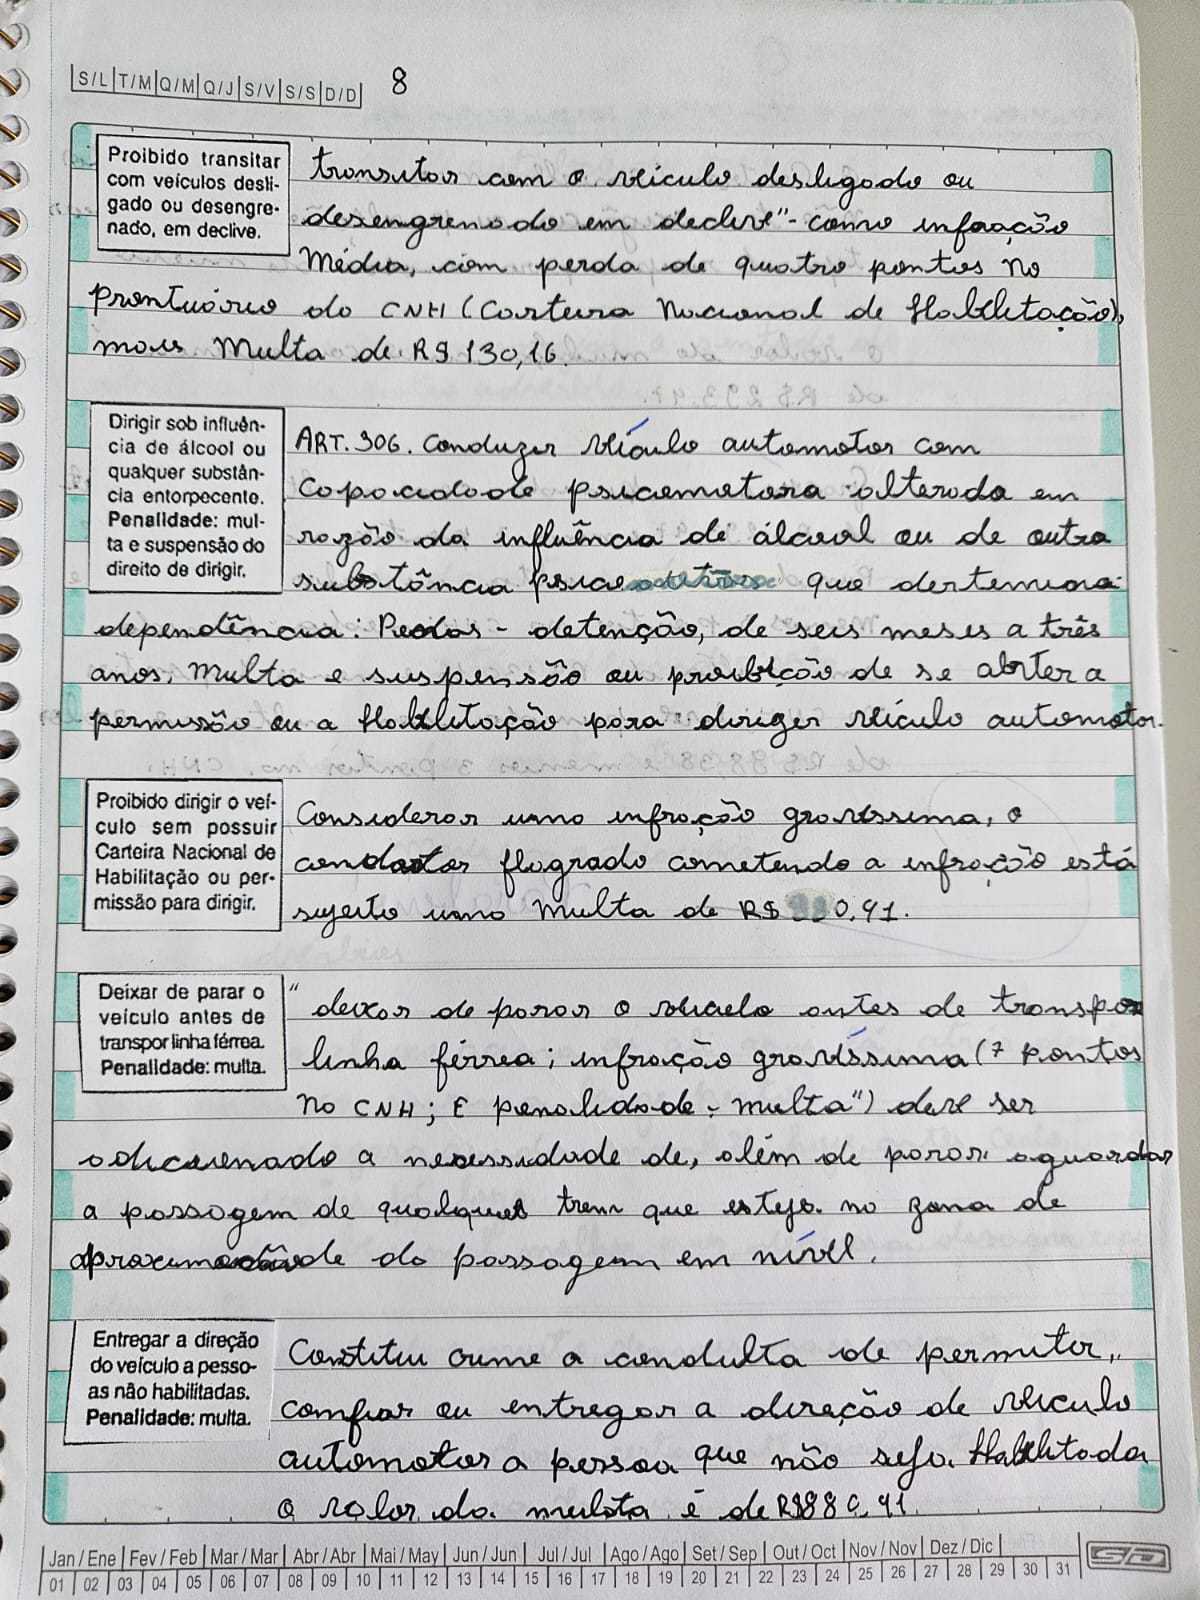 S/L T/M Q/M Q/J S/V S/S D/D 8
Proibido transitar
com veículos desli-
gado ou desengre-
nado, em declive.
transitar com o veículo desligado ou
desengrenado em declive"- como infração
Média, com perda de quatro pontos no
prontuário do CNH (Carteira Nacional de Habilitação),
mais Multa de R$ 130,16.
Dirigir sob influên-
cia de álcool ou
qualquer substân-
cia entorpecente.
Penalidade: mul-
ta e suspensão do
direito de dirigir.
ART. 306. Conduzir veículo automotor com
Capacidade psicomotora alterada em
razão da influência de álcool ou de outra
substância que
dependência: - detenção, de seis meses a três
anos, Multa e suspensão ou proibição de se a
permissão ou a Habilitação para dirigir veículo automotor.
Proibido dirigir o veí-
culo sem possuir
Carteira Nacional de
Habilitação ou per-
missão para dirigir.
Considerar uma infração gravíssima, o
condutor flagrado cometendo a infração está
sujeito uma Multa de R$ 0,91.
Deixar de parar o
veículo antes de
transpor linha férrea.
Penalidade: multa.
"deixar de parar o veículo antes de transpor
linha férrea; infração gravíssima (7 pontos
no CNH; E penalidade - multa") deve ser
adicionado a necessidade de, além de parar, aguardar
a passagem de qualquer trem que esteja no zona de
do passagem em nível.
Entregar a direção
do veículo a pesso-
as não habilitadas.
Penalidade: multa.
Constitui crime a condulta de permitir,
confiar ou entregar a direção de veículo
automotor a pessoa que não seja Habilitada
O valor da multa é de R$880,91
Jan / Ene Fev / Feb Mar / Mar Abr / Abr Mai / May Jun / Jun Jul / Jul Ago / Ago Set / Sep Out / Oct Nov / Nov Dez / Dic
01 02 03 04 05 06 07 08 09 10 11 12 13 14 15 16 17 18 19 20 21 22 23 24 25 26 27 28 29 30 31 SD